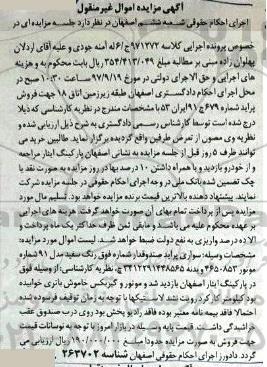 آگهی مزایده اموال غیرمنقول
اجرای احکام حقوقی شعبه ششم اصفهان در نظر دارد جلسه مزایده ای در
خصوص پرونده اجرایی کلاسه ۹۷۱۳۷۲ج/۶ له آمنه جودی و علیه آقای اردلان
پهلوان زاده مبنی بر مطالبه مبلغ ۳۵۴/۴۱۳/۰۴۹ ریال بابت محکوم به و هزینه
های اجرایی و حق الاجرای دولتی در مورخ ۹۷/۹/۱۹ ساعت ۱۰:۳۰ صبح در
محل اجرای احکام دادگستری اصفهان طبقه زیرزمین اتاق ۱۸ جهت فروش
پراید شماره ۶۷۹ج۹۱ ایران ۵۳ با مشخصات مندرج در نظریه کارشناسی که ذیلا
درج شده است توسط کارشناس رسمی دادگستری به شرح ذیل ارزیابی شده و
نظریه وی مصون از تعرض طرفین واقع گردیده برگزار نماید. طالبین خرید می
توانند ظرف ۵ روز قبل از جلسه مزایده به نشانی اصفهان پارکینگ ایثار مراجعه
و از خودرو بازدید و با همراه داشتن ۱۰ درصد بها در روز مزایده به صورت نقد یا
چک تضمین شده بانک ملی در وجه اجرای احکام حقوقی در جلسه مزایده شرکت
نمایند. پیشنهاد دهنده بالاترین قیمت برنده مزایده خواهد بود. تسلیم مال مورد
مزایده پس از پرداخت تمام بهای آن صورت خواهد گرفت. هزینه های اجرایی
بر عهده محکوم علیه می باشد و مابقی ثمن ظرف حداکثر یک ماه پرداخت و
الا ده درصد واریزی به نفع دولت ضبط خواهد شد. لیست اموال مورد مزایده:
مشخصات وسیله: سواری پراید صندوقدار شماره فوق رنگ سفید مدل ۹۱ شماره
موتور ۴۶۵۰۸۵۳ و بدنه ۳۴۱۲۲۹۱۴۴۸۵۶۵ج. نظریه کارشناسی: از وسیله فوق
در پارکینگ ایثار اصفهان بازدید شد و موتور و گیربکس خاموش باتری خوابیده
بود کیلومتر کار کرد رویت نشد لاستیکها با توجه به زمان توقیف فرسوده شده
احتمالا فاقد بیمه نامه معتبر بوده فاقد رادیو پخش بود روی درب صندوق عقب
خراشیدگی داشت. قیمت پایه وسیله در بازار امروز با توجه به نوسانات قیمت
جهت فروش به صورت مزایده حدودا مبلغ ۱۹۰/۰۰۰/۰۰۰ ریال ارزیابی می
گردد. دادورز اجرای احکام حقوقی اصفهان شناسه ۲۶۳۷۰۲